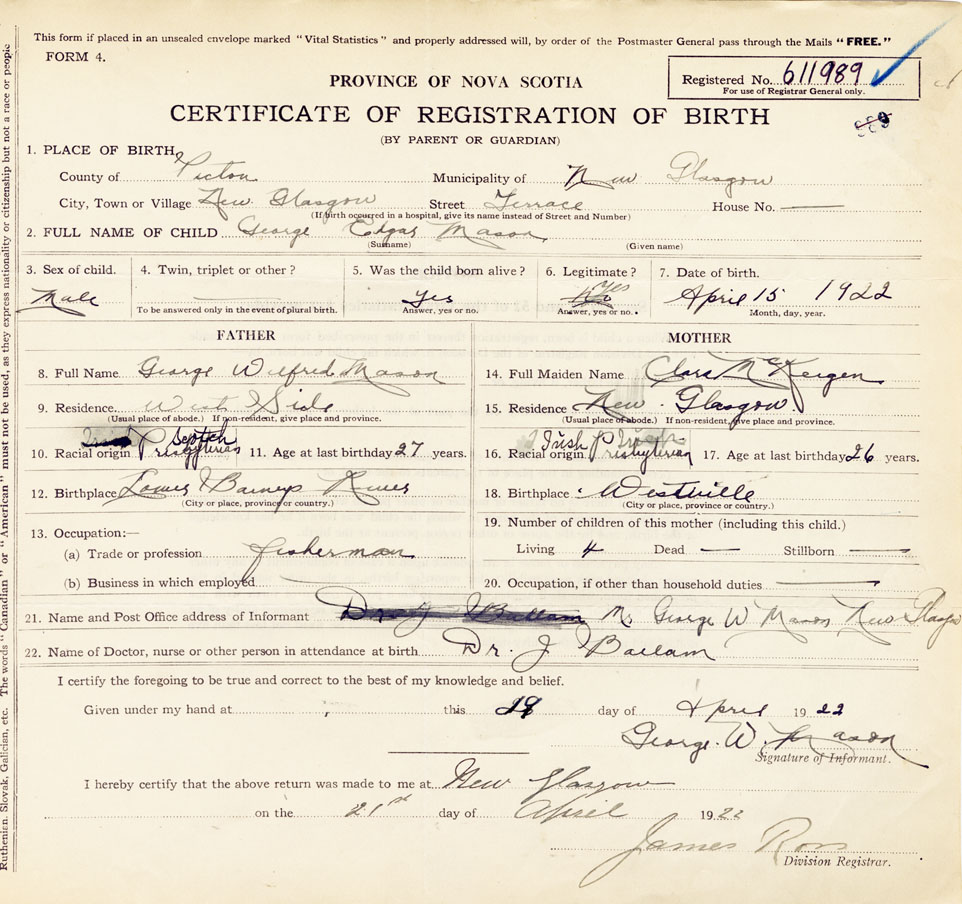 This form if placed in an unsealed envelope marked "Vital Statistics" and properly addressed will, by order of the Postmaster General pass through the Mails "FREE."
FORM 4.
PROVINCE OF NOVA SCOTIA
Registered No. 611989
For use of Registrar General only.
CERTIFICATE OF REGISTRATION OF BIRTH
989
(BY PARENT OR GUARDIAN)
1. PLACE OF BIRTH
County of Pictou Municipality of New Glasgow
City, Town or Village New Glasgow Street Terrace House No. —
(If birth occurred in a hospital, give its name instead of Street and Number)
2. FULL NAME OF CHILD George Edgar Mason
(Surname) (Given name)
3. Sex of child. 4. Twin, triplet or other? 5. Was the child born alive? 6. Legitimate? 7. Date of birth.
Male — Yes No Yes April 15 1922
To be answered only in the event of plural birth. Answer, yes or no. Answer, yes or no. Month, day, year.
FATHER MOTHER
8. Full Name George Wilfred Mason 14. Full Maiden Name Clara McKeigen
9. Residence West Side 15. Residence New Glasgow
(Usual place of abode.) If non-resident, give place and province. (Usual place of abode.) If non-resident, give place and province.
10. Racial origin Scotch Presbyterian 11. Age at last birthday 27 years. 16. Racial origin Irish Presbyterian 17. Age at last birthday 26 years.
12. Birthplace Lower Barneys River 18. Birthplace Westville
(City or place, province or country.) (City or place, province or country.)
13. Occupation:— 19. Number of children of this mother (including this child.)
(a) Trade or profession fisherman Living 4 Dead — Stillborn —
(b) Business in which employed — 20. Occupation, if other than household duties —
21. Name and Post Office address of Informant Dr J Ballam M. George W Mason New Glasgow
22. Name of Doctor, nurse or other person in attendance at birth Dr. J Ballam
I certify the foregoing to be true and correct to the best of my knowledge and belief.
Given under my hand at this day of April 1922
George. W. Mason
Signature of Informant.
I hereby certify that the above return was made to me at New Glasgow
on the 21st day of April 1922
James Ross
Division Registrar.
Ruthenian, Slovak, Galician, etc. The words "Canadian" or "American" must not be used, as they express nationality or citizenship but not a race or people